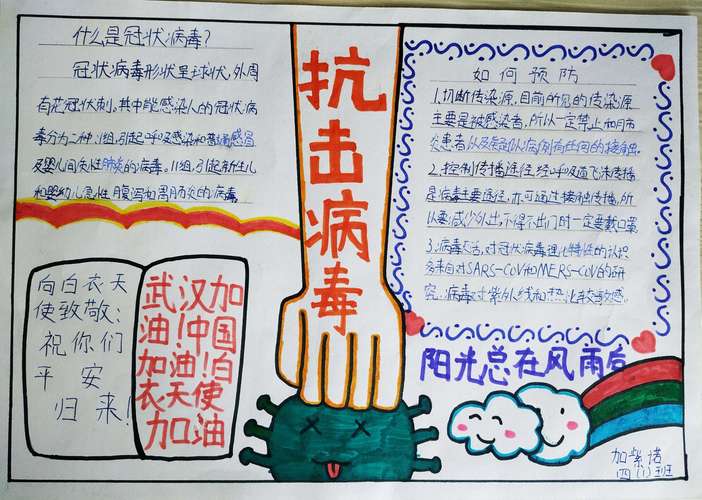 什么是冠状病毒?
冠状病毒形状呈球状,外周
有花冠状刺。其中能感染人的冠状病
毒分为二种:I组,引起呼吸感染和普通感冒
及婴儿间质性肺炎的病毒。II组,引起新生儿
和婴幼儿急性腹泻和胃肠炎的病毒
抗击病毒
如何预防
1.切断传染源,目前所见的传染源
主要是被感染者,所以一定禁止和肺
炎患者以及疑似病例有任何的接触。
2.控制传播途径,经呼吸道飞沫传播
是病毒主要途径,亦可通过接触传播,所
以要:减少外出,不得不出门时一定要戴口罩
3.病毒灭活,对冠状病毒理化特征的认识
多来自对SARS-CoV和MERS-CoV的研
究。病毒对紫外线和热比较敏感。
向白衣天
使致敬:
祝你们
平安
归来!
武汉加
油!中国
加油!白
衣天使
加油
阳光总在风雨后
加紫诺
四(1)班